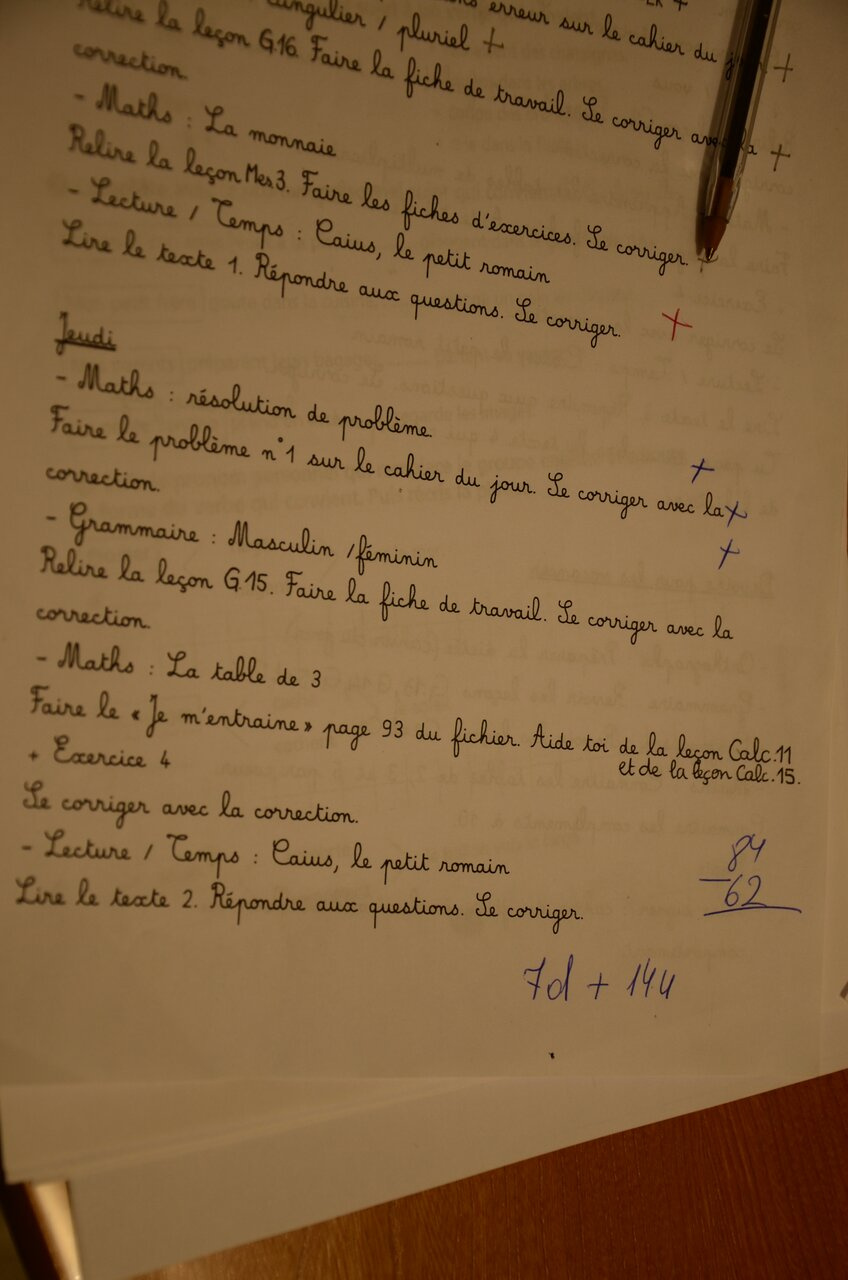 erreur sur le cahier du jour +
singulier / pluriel +
Relire la leçon G.16. Faire la fiche de travail. Se corriger avec la +
correction.
- Maths : La monnaie
Relire la leçon Mes3. Faire les fiches d'exercices. Se corriger. +
- Lecture / Temps : Caius, le petit romain
Lire le texte 1. Répondre aux questions. Se corriger. +
Jeudi
- Maths : résolution de problème. +
Faire le problème n°1 sur le cahier du jour. Se corriger avec la +
correction.
- Grammaire : Masculin /féminin +
Relire la leçon G.15. Faire la fiche de travail. Se corriger avec la
correction.
- Maths : La table de 3
Faire le « Je m'entraine » page 93 du fichier. Aide toi de la leçon Calc.11
et de la leçon Calc.15.
+ Exercice 4
Se corriger avec la correction.
- Lecture / Temps : Caius, le petit romain
Lire le texte 2. Répondre aux questions. Se corriger.
84
- 62
7d + 14u